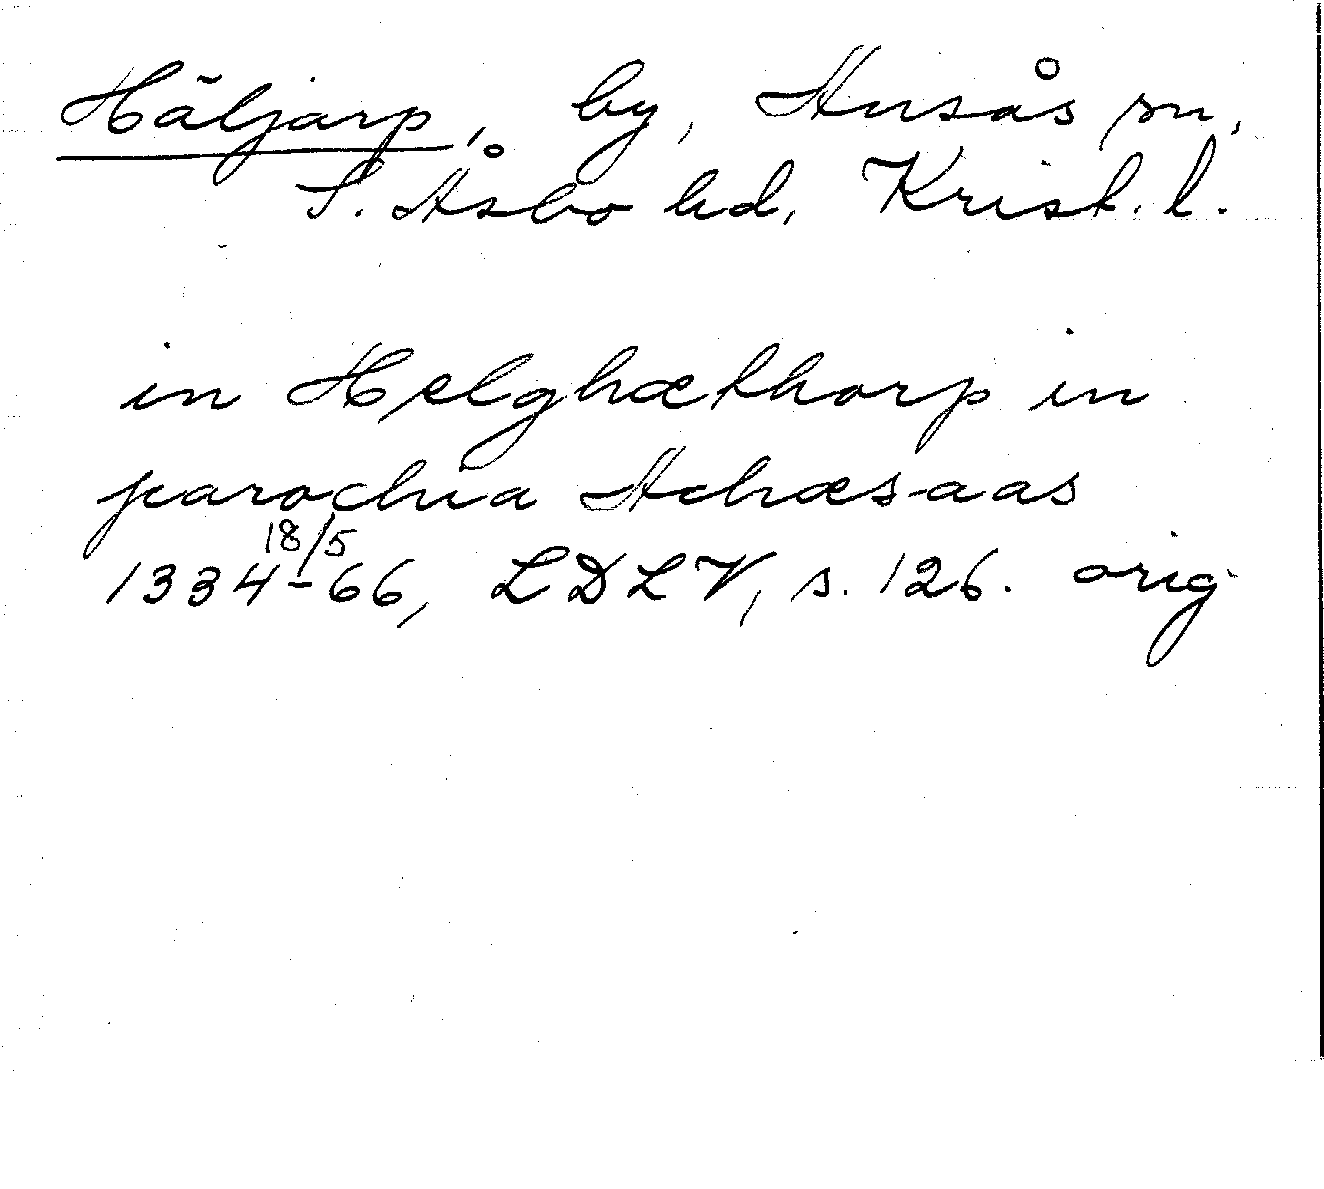 Häljarp, by, Ausås sn,
S. Åsbo hd, Krist. l.
in Hælghæthorp in
parochia Achæsaas
1334 18/5 -66, LDLV, s. 126. orig